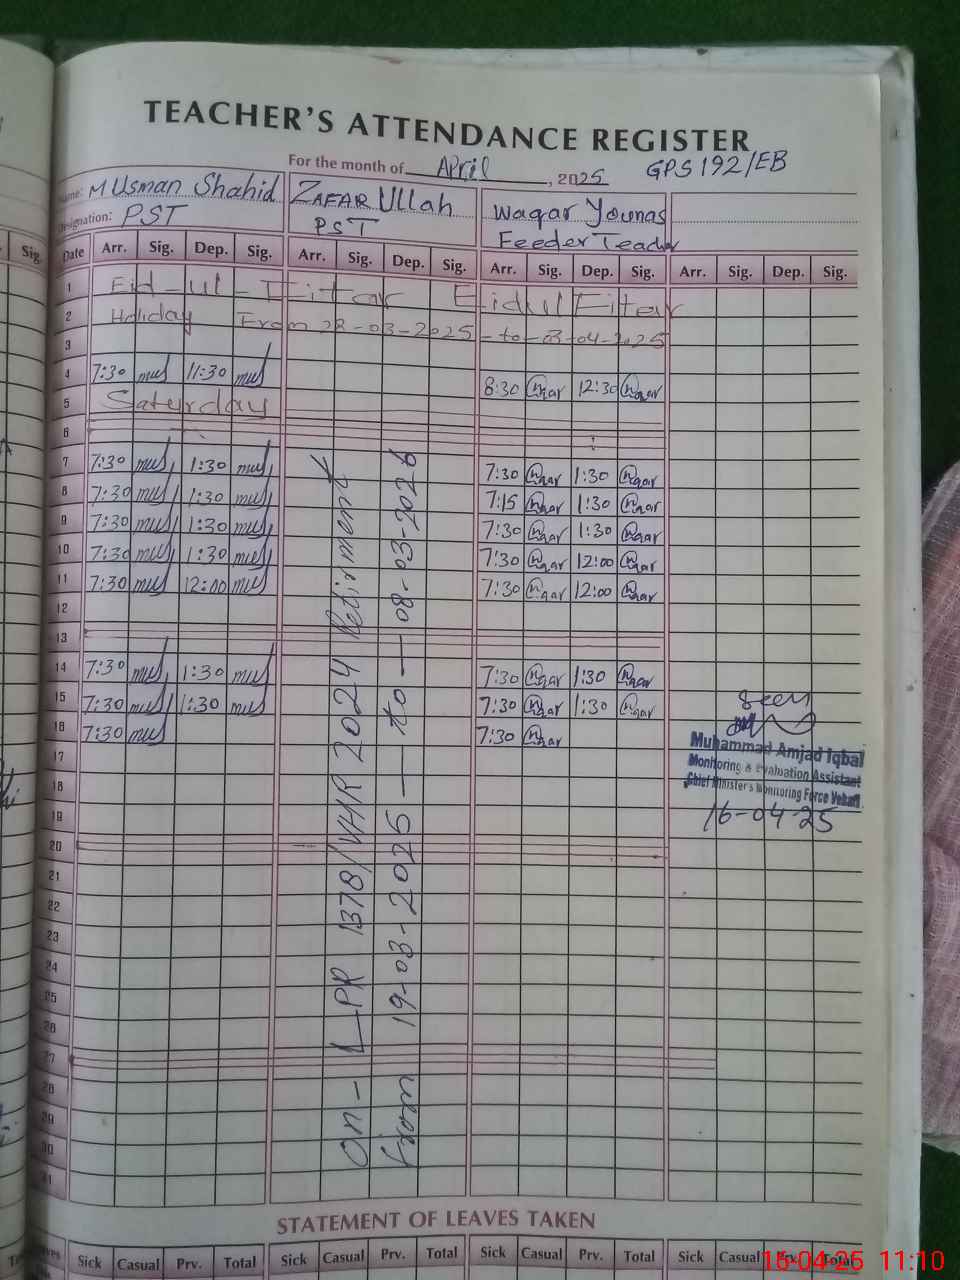 TEACHER'S ATTENDANCE REGISTER
For the month of April, 2025 GPS 192/EB
Name: M Usman Shahid
Designation: PST
ZAFAR Ullah
PST
Waqar Younas
Feeder Teacher
Date Arr. Sig. Dep. Sig. Arr. Sig. Dep. Sig. Arr. Sig. Dep. Sig. Arr. Sig. Dep. Sig.
1 Eid-ul-Fitar Eid ul Fitar
2 Holiday From 28-03-2025 - to - 03-04-2025
3
4 7:30 11:30 8:30 12:30
5 Saturday
6
7 7:30 1:30 7:30 1:30
8 7:30 1:30 7:15 1:30
9 7:30 1:30 7:30 1:30
10 7:30 1:30 7:30 12:00
11 7:30 12:00 7:30 12:00
12
13
14 7:30 1:30 7:30 1:30
15 7:30 1:30 7:30 1:30
16 7:30 7:30
17
18
19
20
21
22
23
24
25
26
27
28
29
30
31
On - LPR 1378/VHR 2024 Retirment
From 19-03-2025 — to — 08-03-2026
Seen
Muhammad Amjad Iqbal
Monitoring & Evaluation Assistant
Chief Minister's Monitoring Force Vehari
16-04-25
STATEMENT OF LEAVES TAKEN
Sick Casual Prv. Total Sick Casual Prv. Total Sick Casual Prv. Total Sick Casual Prv. Total
16-04-25 11:10